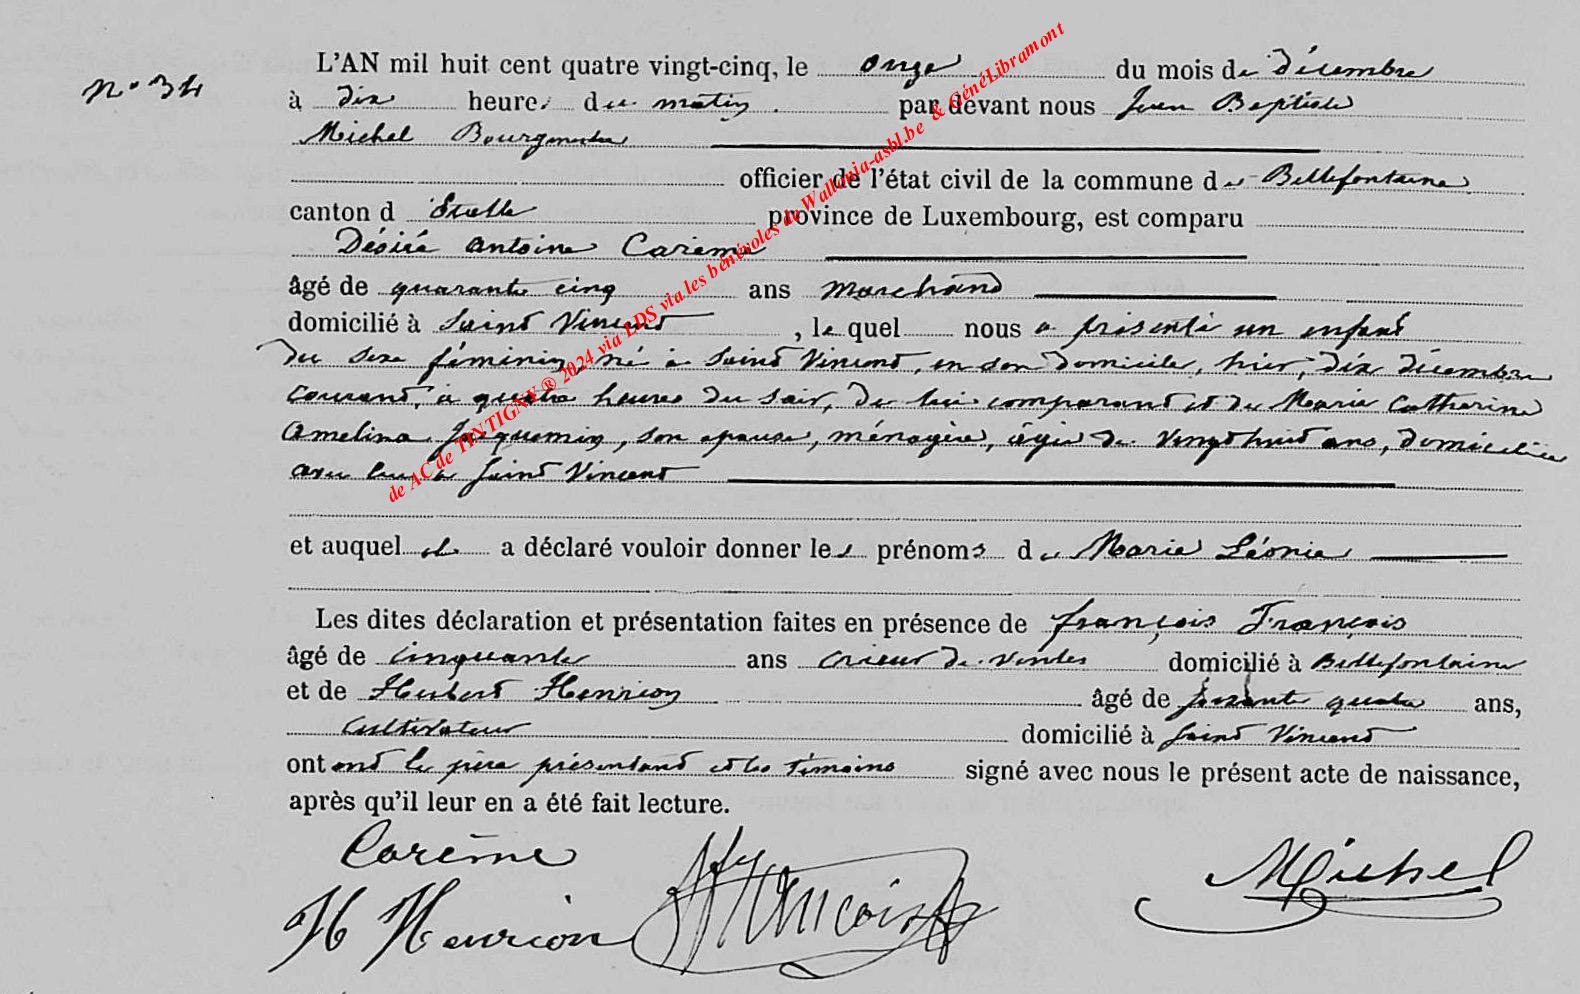 N° 34
L'AN mil huit cent quatre vingt-cinq, le onze du mois de décembre
à dix heures du matin par devant nous Jean Baptiste
Michel Bourgmestre
officier de l'état civil de la commune de Bellefontaine
canton d'Etalle province de Luxembourg, est comparu
Désiré Antoine Carème
âgé de quarante cinq ans marchand
domicilié à Saint Vincent, lequel nous a présenté un enfant
du sexe féminin, né à Saint Vincent, en son domicile, hier, dix décembre
courant, à quatre heures du soir, de lui comparant et de Marie Catherine
Amelina Jacquemin, son épouse, ménagère, âgée de vingt huit ans, domiciliée
avec lui à Saint Vincent
et auquel il a déclaré vouloir donner les prénoms de Marie Léonie
Les dites déclaration et présentation faites en présence de François François
âgé de cinquante ans crieur de ventes domicilié à Bellefontaine
et de Hubert Henrion âgé de soixante quatre ans,
cultivateur domicilié à Saint Vincent
ont ont le père présentant et les témoins signé avec nous le présent acte de naissance,
après qu'il leur en a été fait lecture.
Carème
H Henrion
François
Michel
de AC de TINTIGNY ® 2024 via LDS via les bénévoles de Wallonia-asbl.be & GénéLibramont